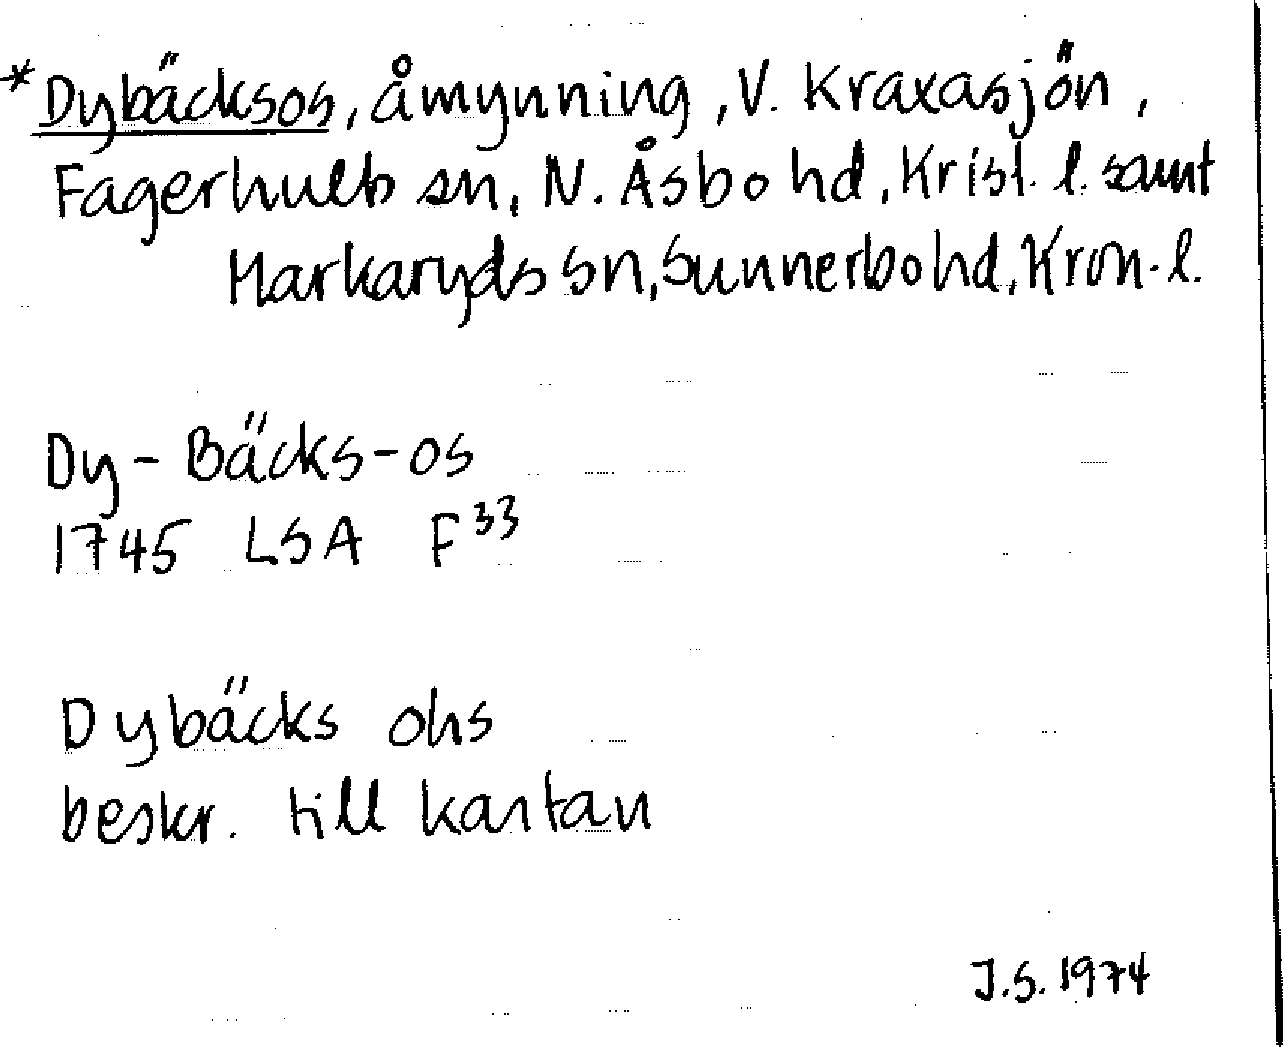 *Dybäcksos, åmynning, V. Kraxasjön,
Fagerhults sn, N. Åsbo hd, Krist. l. samt
Markaryds sn, Sunnerbo hd, Kron. l.
Dy-Bäcks-os
1745 LSA F³³
Dybäcks ohs
beskr. till kartan
J.S. 1974